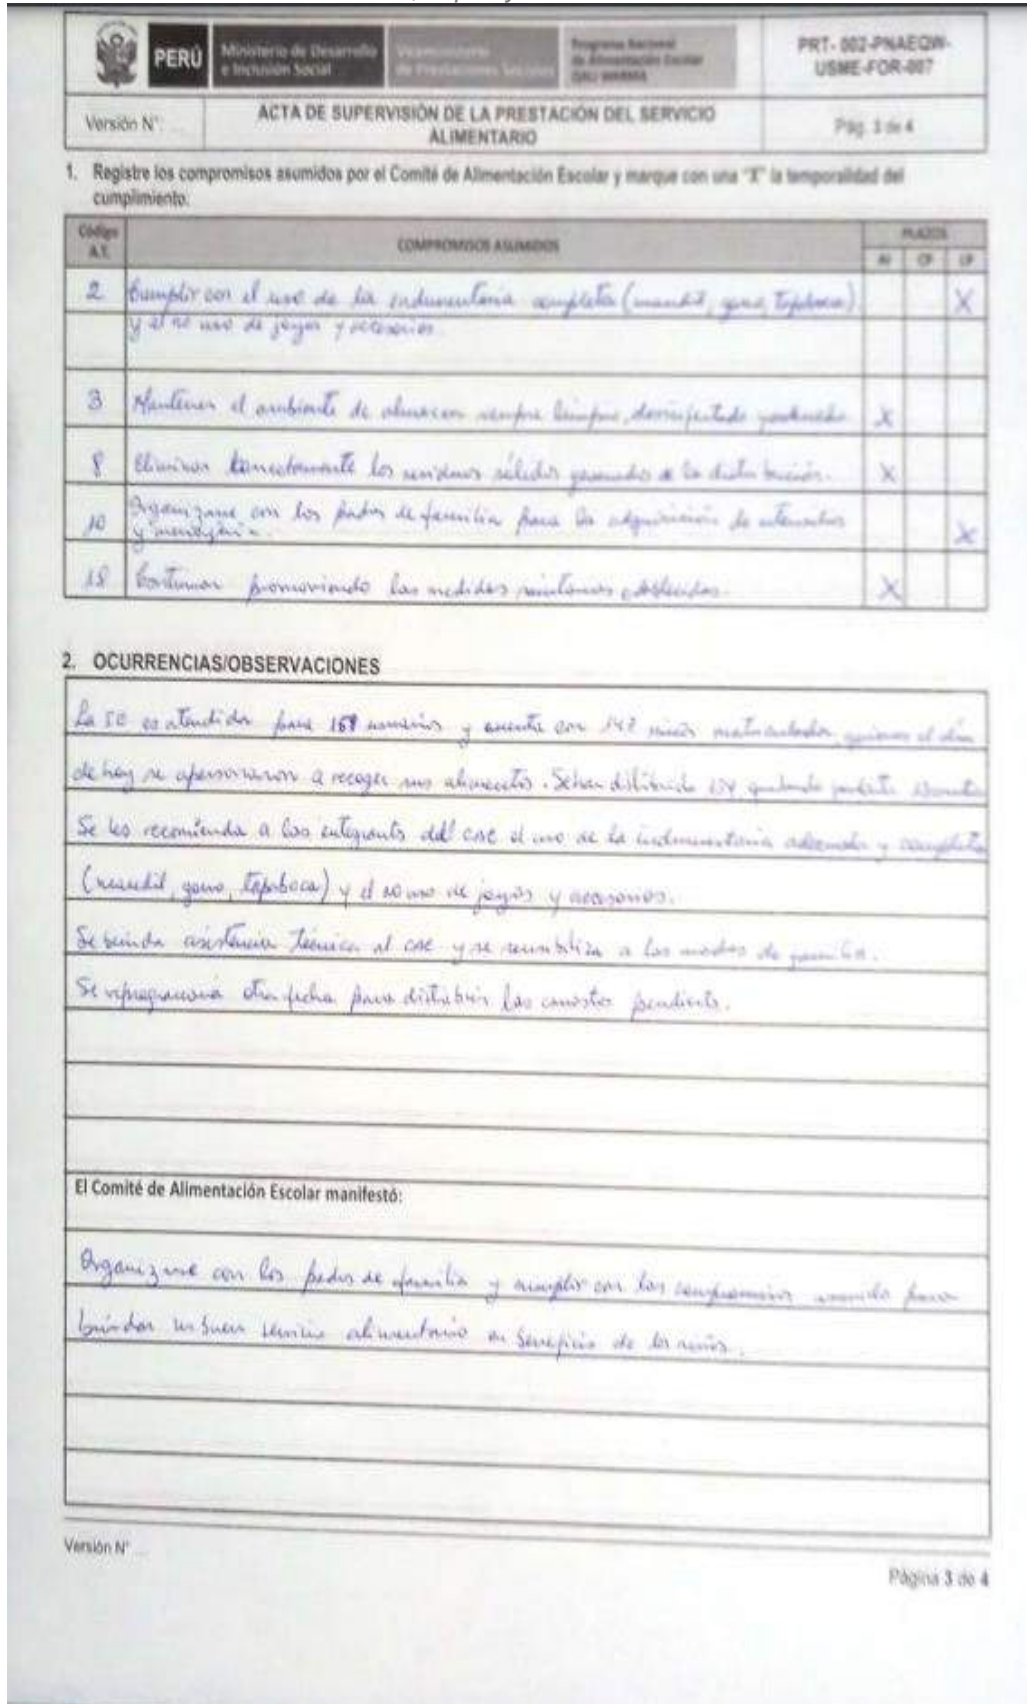 PERÚ
Ministerio de Desarrollo
e Inclusión Social
Viceministerio
de Prestaciones Sociales
Programa Nacional
de Alimentación Escolar
QALI WARMA
PRT- 002-PNAEQW-
USME-FOR-007
Versión N°: ...
ACTA DE SUPERVISIÓN DE LA PRESTACIÓN DEL SERVICIO
ALIMENTARIO
Pág. 3 de 4
1. Registre los compromisos asumidos por el Comité de Alimentación Escolar y marque con una "X" la temporalidad del
cumplimiento.
Código
A.T.
COMPROMISOS ASUMIDOS
PLAZOS
AI CP LP
2 Cumplir con el uso de la indumentaria completa (mandil, gorro, tapaboca) X
y el no uso de joyas y accesorios.
3 Mantener el ambiente de almacen siempre limpio, desinfectado X
8 Eliminar correctamente los residuos sólidos generados de la distribución. X
10 Organizarse con los padres de familia para la adquisición de utensilios X
y menajería.
18 Continuar promoviendo las medidas sanitarias establecidas. X
2. OCURRENCIAS/OBSERVACIONES
La IE es atendida para usuarios y cuenta con 147 niños matriculados quienes el día
de hoy se apersonaron a recoger sus alimentos. Se han distribuido 134 quedando
Se les recomienda a los integrants del cae el uso de la indumentaria adecuada y completa
(mandil, gorro, tapaboca) y el no uso de joyas y accesorios.
Se brinda asistencia técnica al cae y se sensibiliza a las madres de familia.
Se reprogramará otra fecha para distribuir las canastas pendients.
El Comité de Alimentación Escolar manifestó:
Organizarse con los padres de familia y cumplir con los compromisos asumido para
brindar un buen servicio alimentario en beneficio de los niños.
Versión N° ...
Página 3 de 4